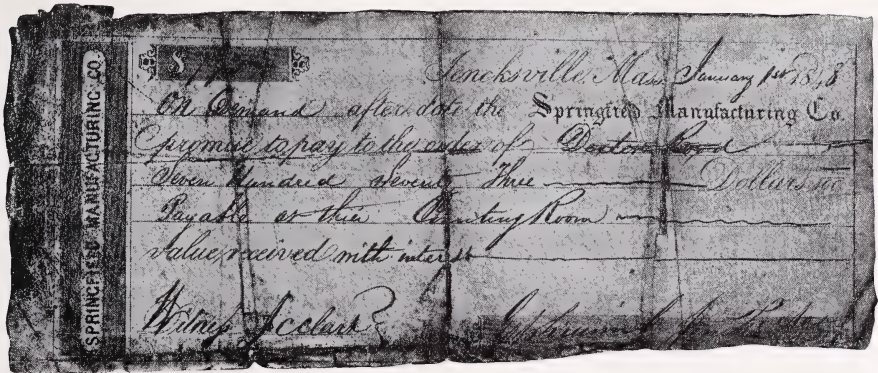 SPRINGFIELD MANUFACTURING CO.
$
Jencksville, Mass January 1st 1848
On Demand after date the Springfield Manufacturing Co.
promise to pay to the order of
Seven Hundred seventy Three Dollars
Payable at their Counting Room
value received with interest
Witness J C Clark